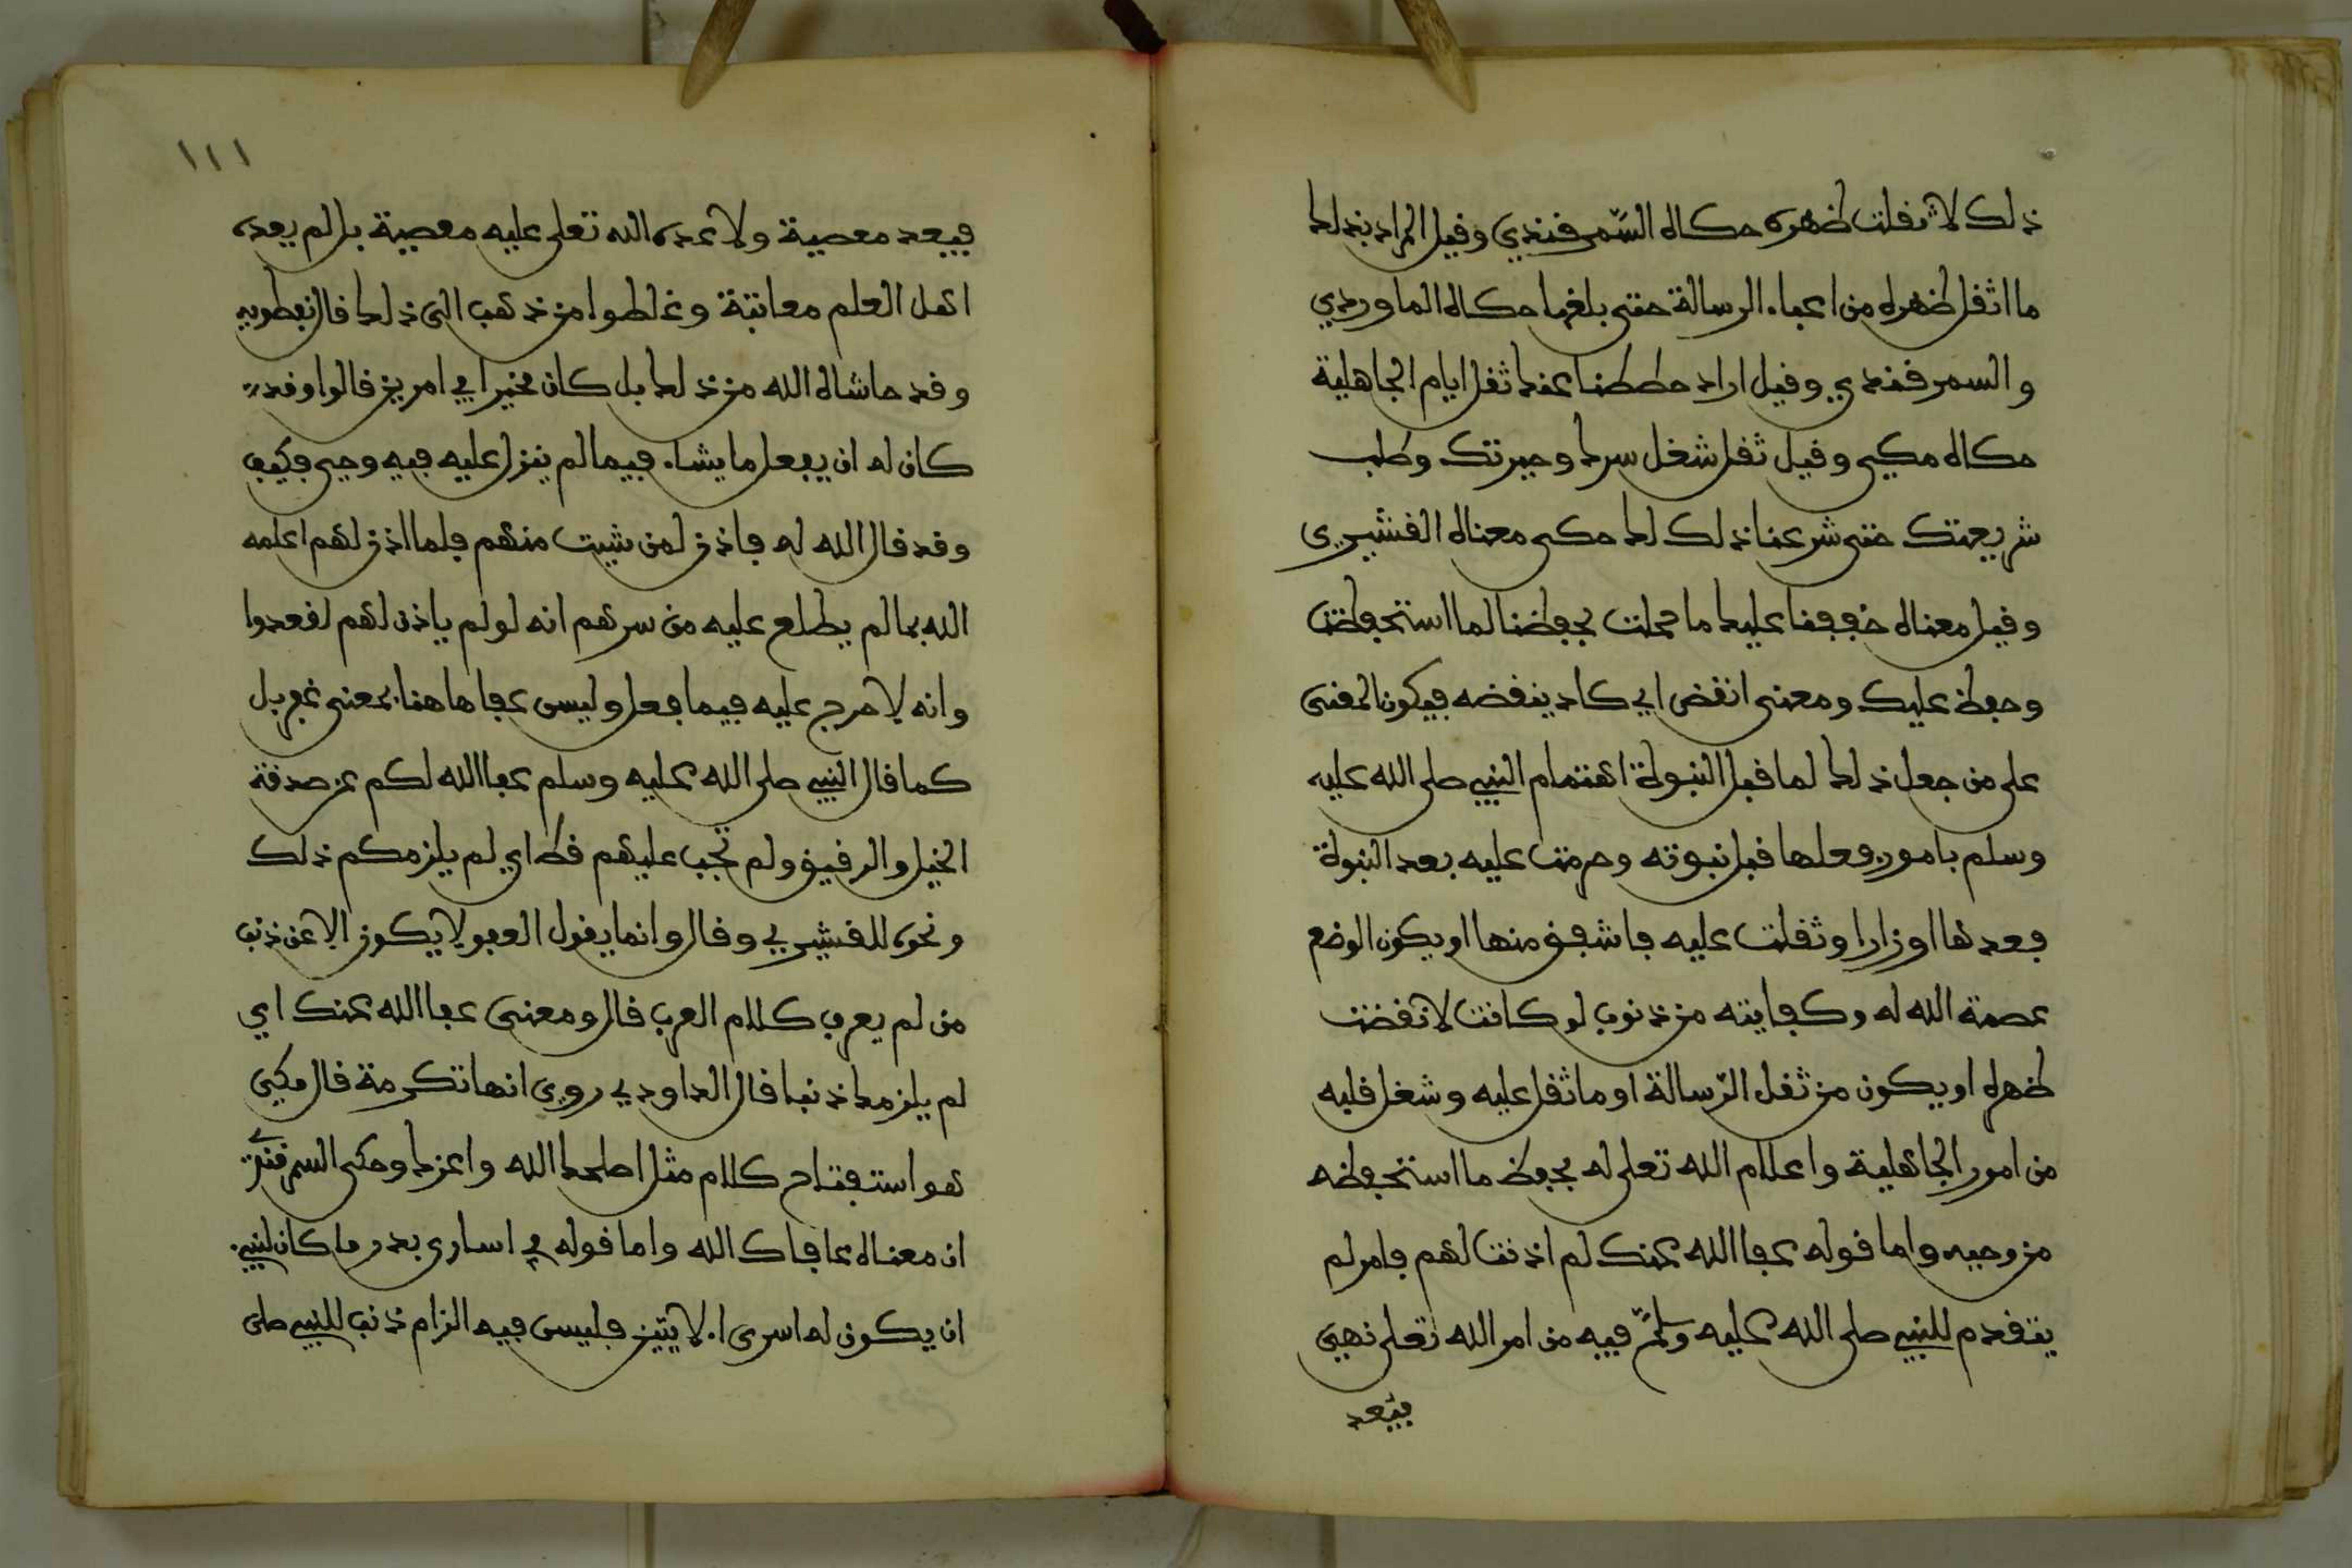 ذلك لاثقلت ظهره حكاه السّمرقندي وقيل المراد بذلك
ما اثقل ظهره من اعباء الرسالة حتى بلغها حكاه الماوردي
والسمرقندي وقيل اراد حططنا عنك ثقل ايام الجاهلية
حكاه مكي وقيل ثقل شغل سرك وحيرتك وطلب
شريعتك حتى شرعنا ذلك لك حكى معناه القشيري
وقيل معناه خففنا عليك ما حملت بحفظنا لما استحفظت
وحفظ عليك ومعنى انقض اي كاد ينقضه فيكون المعنى
على من جعل ذلك لما قبل النبوة اهتمام النبي صلى الله عليه
وسلم بامور فعلها قبل نبوته وحرمت عليه بعد النبوة
فعدها اوزارا وثقلت عليه فاشفق منها او يكون الوضع
عصمة الله له وكفايته من ذنوب لو كانت لانقضت
ظهره او يكون من ثقل الرّسالة او ما ثقل عليه وشغل قلبه
من امور الجاهلية واعلام الله تعلى له بحفظ ما استحفظه
من وحيه واما قوله عفا الله عنك لم اذنت لهم فامر لم
يتقدم للنبي صلى الله عليه وسلم فيه من امر الله تعلى نهي
فيعد
١١١
فيعد معصية ولا عده الله تعلى عليه معصية بل لم يعده
اهل العلم معاتبة وغلطوا من ذهب الى ذلك قال نفطويه
وقد حاشاه الله من ذلك بل كان مخيرا في امرين قالوا وقد
كان له ان يفعل ما يشاء فيما لم ينزل عليه فيه وحي فكيف
وقد قال الله له فاذن لمن شيت منهم فلما اذن لهم اعلمه
الله بما لم يطلع عليه من سرهم انه لو لم ياذن لهم لقعدوا
وانه لا حرج عليه فيما فعل وليس عفا هاهنا بمعنى غفر بل
كما قال النبي صلى الله عليه وسلم عفا الله لكم عن صدقة
الخيل والرقيق ولم تجب عليهم قط اي لم يلزمكم ذلك
ونحوه للقشيري وقال وانما يقول العفو لا يكون الا عن ذنب
من لم يعرف كلام العرب قال ومعنى عفا الله عنك اي
لم يلزمك ذنبا قال الداودي روي انها تكرمة قال مكي
هو استفتاح كلام مثل اصلحك الله واعزك وحكى السمرقندي
ان معناه عافاك الله واما قوله في اسارى بدر ما كان لنبي
ان يكون له اسرى الايتين فليس فيه الزام ذنب للنبي صلى